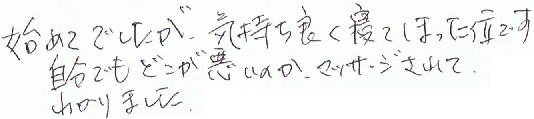 始めてでしたが、気持ち良く寝てしまった位です
自分でもどこが悪いのか、マッサージされて、
わかりました。